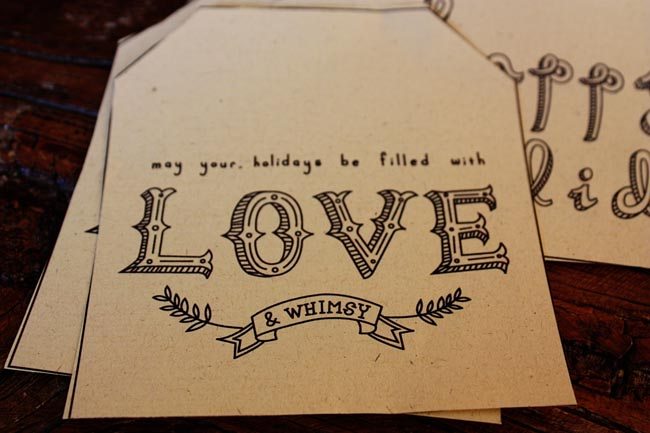 may your holidays be filled with
LOVE
& WHIMSY